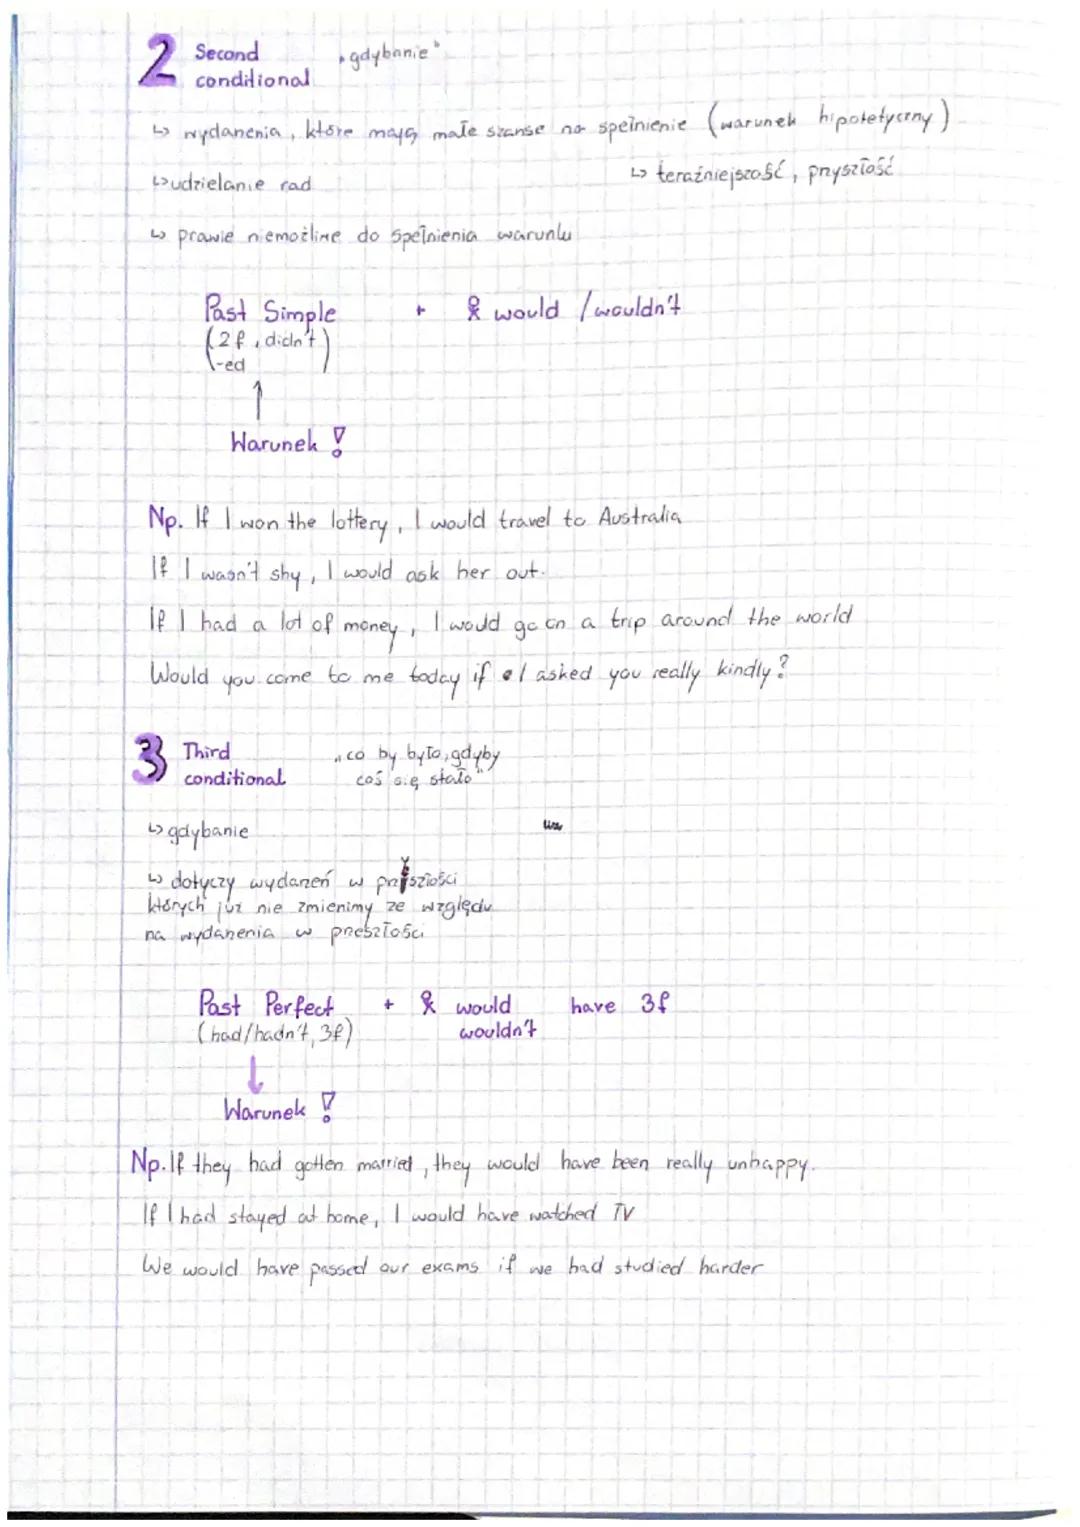 2 Second conditional „gdybanie"
↳ wydarzenia, które mają małe szanse na spełnienie (warunek hipotetyczny)
↳ teraźniejszość, przyszłość
↳ udzielanie rad
↳ prawie niemożliwe do spełnienia warunku
Past Simple + would / wouldn't
(2f, didn't
-ed)
↑
Warunek !
Np. If I won the lottery, I would travel to Australia
If I wasn't shy, I would ask her out.
If I had a lot of money, I would go on a trip around the world
Would you come to me today if I asked you really kindly?
3 Third conditional „co by było, gdyby
coś się stało"
↳ gdybanie
↳ dotyczy wydarzeń w przyszłości
których już nie zmienimy ze względu
na wydarzenia w przeszłości
Past Perfect + would have 3f
(had/hadn't, 3f) wouldn't
↓
Warunek !
Np. If they had gotten married, they would have been really unhappy.
If I had stayed at home, I would have watched TV
We would have passed our exams if we had studied harder